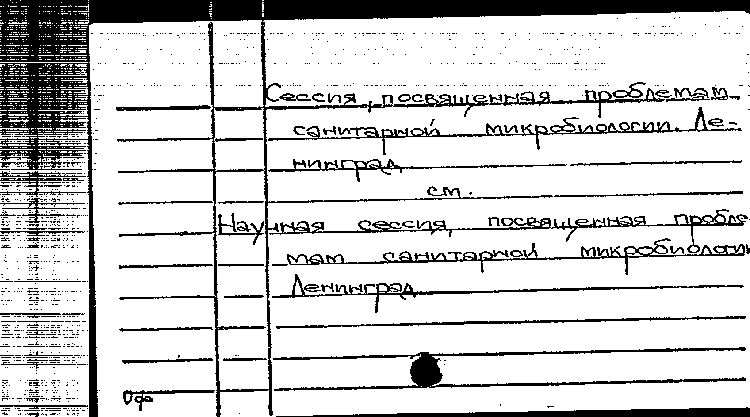 Сессия, посвященная проблемам
санитарной микробиологии. Ле-
нинград
см.
Научная сессия, посвященная пробле
мам санитарной микробиологи
Ленинград